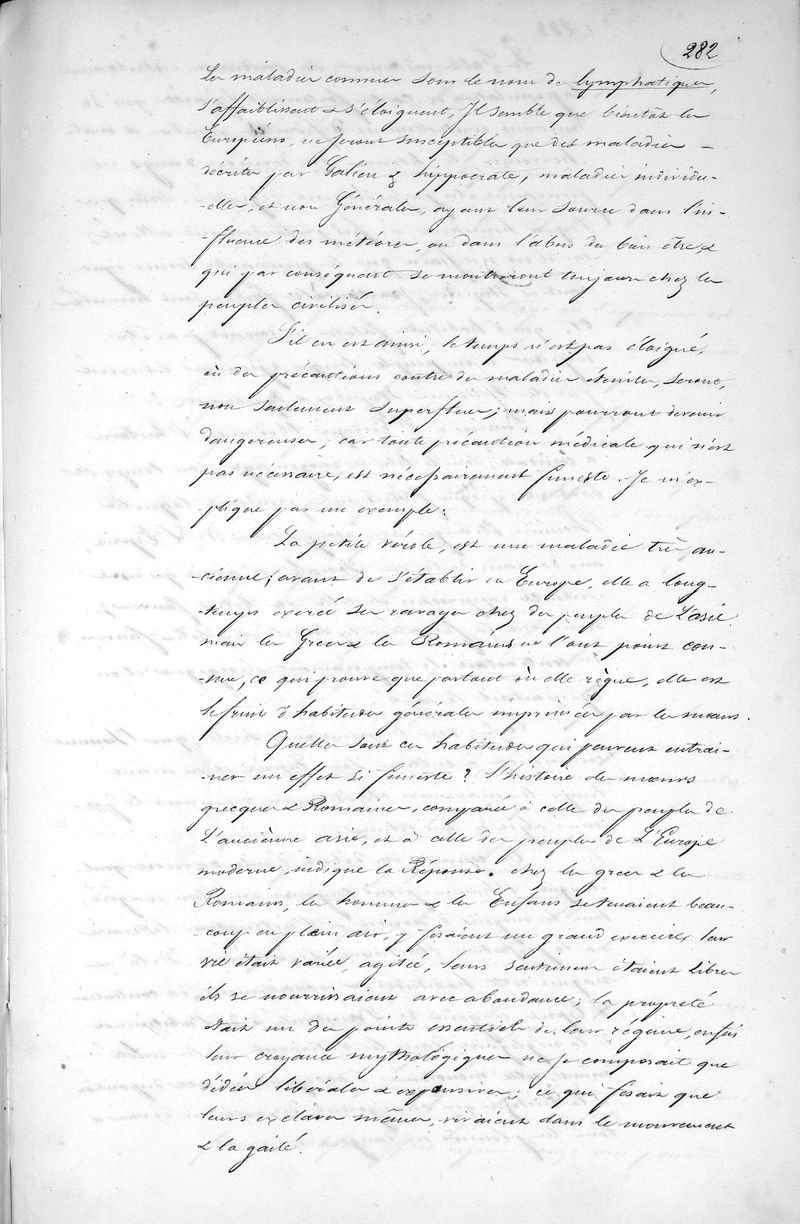 282
Les maladies connues sous le nom de lymphatiques,
s'affaiblissent & s'éloignent, Il semble que bientôt les
Européens, ne seront susceptibles que des maladies -
décrites par Galien & hippocrate, maladies individu-
-elles, et non Générales, ayant leur source dans l'in-
-fluence des météores, ou dans l'abus du bien être, &
qui par conséquent se montreront toujours chez les
peuples civilisés.
S'il en est ainsi, le temps n'est pas éloigné,
où des précautions contre des maladies éteintes, seront,
non seulement superflues; mais pourront devenir
dangereuses; car toute précaution médicale qui n'est
pas nécessaire, est nécessairement funeste. Je m'ex-
-plique par un exemple:
La petite vérole, est une maladie très an-
-cienne; avant de s'établir en Europe, elle a long-
-temps exercé ses ravages chez des peuples de L'asie.
mais les Grecs & les Romains ne l'ont point con-
-nue, ce qui prouve que partout où elle règne, elle est
le fruit d'habitudes générales imprimées par les mœurs.
Quelles sont ces habitudes qui peuvent entrai-
-ner un effet si funeste? L'histoire des mœurs
grecques & Romaines, comparée à celle des peuples de
L'anciènne asie, et à celle des peuples de L'Europe
moderne, indique la Réponse. chez les grecs & les
Romains, les hommes & les Enfans se tenaient beau-
-coup en plein air, y fesaient un grand exercice, leur
vie était variée, agitée, leurs sentimens étaient libres
ils se nourrissaient avec abondance; la propreté
était un des points essentiels de leur régime, enfin
leur croyance mythologique ne se composait que
d'idées libérales & expansives; ce qui fesait que
leurs esclaves mêmes, vivaient dans le mouvement
& la gaité.